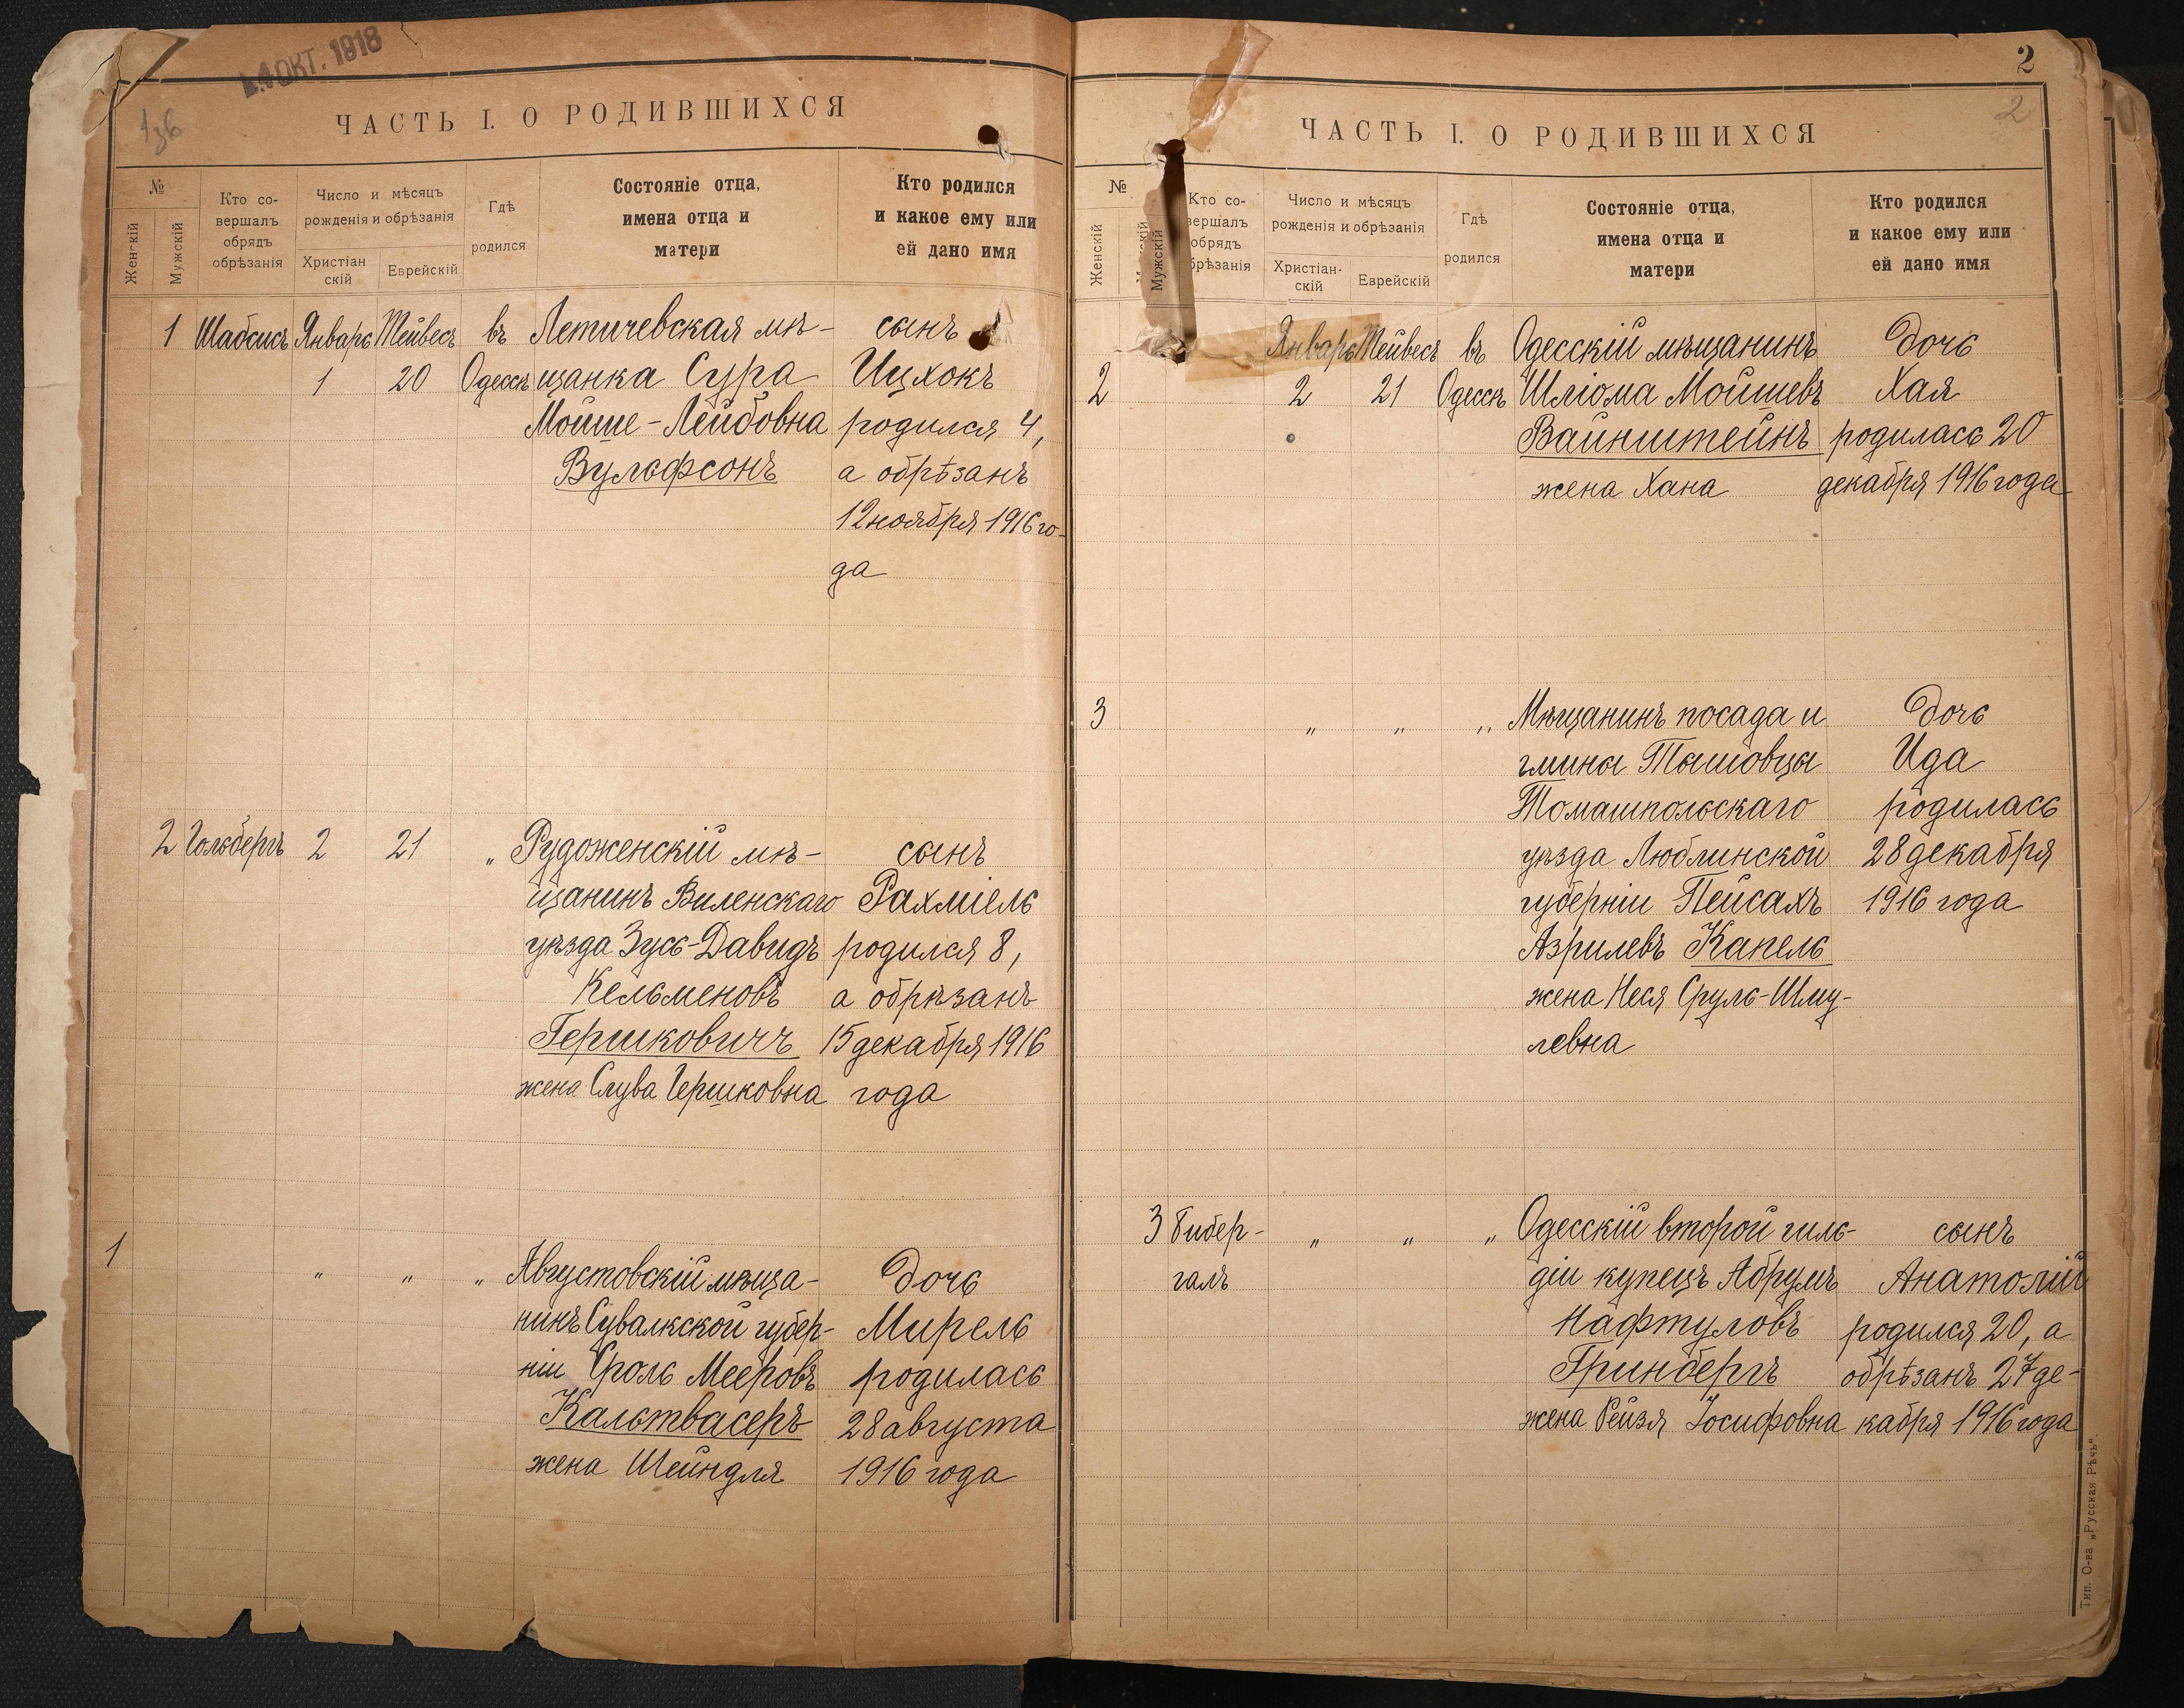 14 ОКТ. 1918
ЧАСТЬ I. О РОДИВШИХСЯ
№
Женскій
Мужскій
Кто со-
вершалъ
обрядъ
обрѣзанія
Число и мѣсяцъ
рожденія и обрѣзанія
Христіан
скій
Еврейскій
Гдѣ
родился
Состояніе отца,
имена отца и
матери
Кто родился
и какое ему или
ей дано имя
1 Шабсисъ Январь Тейвесъ въ Летичевская мѣ- сынъ
1 20 Одессѣ щанка Сура Ицхокъ
Мойше-Лейбовна родился 4,
Вульфсонъ а обрѣзанъ
12 ноября 1916 го-
да
2 Гольбергъ 2 21 „ Рудоженскій мѣ- сынъ
щанинъ Виленскаго Рахміель
уѣзда Зусь-Давидъ родился 8,
Кельменовъ а обрѣзанъ
Гершковичъ 15 декабря 1916
жена Слува Гершковна года
1 „ „ „ Августовскій мѣща- дочь
нинъ Сувалкской губер- Мирель
ніи Сроль Мееровъ родилась
Кальтвасеръ 28 августа
жена Шейндля 1916 года
2
2
ЧАСТЬ I. О РОДИВШИХСЯ
№
Женскій
Мужскій
Кто со-
вершалъ
обрядъ
брѣзанія
Число и мѣсяцъ
рожденія и обрѣзанія
Христіан-
скій
Еврейскій
Гдѣ
родился
Состояніе отца,
имена отца и
матери
Кто родился
и какое ему или
ей дано имя
Январь Тейвесъ въ Одесскій мѣщанинъ дочь
2 2 21 Одессѣ Шліома Мойшевъ Хая
Вайнштейнъ родилась 20
жена Хана декабря 1916 года
3 „ „ „ Мѣщанинъ посада и дочь
гмины Тышовцы Ида
Томашпольскаго родилась
уѣзда Люблинской 28 декабря
губерніи Пейсахъ 1916 года
Азрилевъ Капель
жена Неся Сруль-Шму-
левна
3 Гибер- „ „ „ Одесскій второй гиль- сынъ
галъ діи купецъ Абрумъ Анатолій
Нафтуловъ родился 20, а
Гринбергъ обрѣзанъ 27 де-
жена Рейзя Іосифовна кабря 1916 года
Тип. О-ва „Русская Рѣчь“.